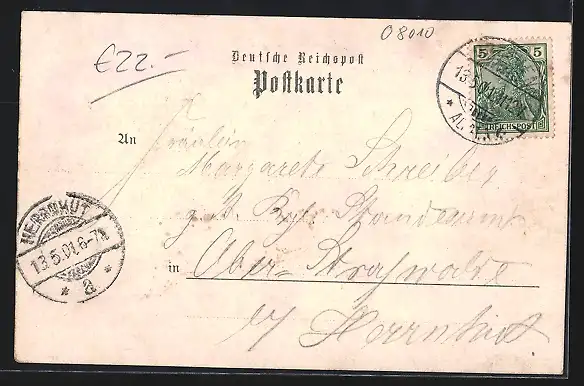 €22.-
08010
Deutsche Reichspost
Postkarte
5 5
REICHSPOST
13.5.01
An Fräulein
Margarete Schreiber
z. Z. Kgl. Standesamt
in Ober-Strahwalde
b/ Herrnhut
HERRNHUT
13.5.01.6-7N
* a *